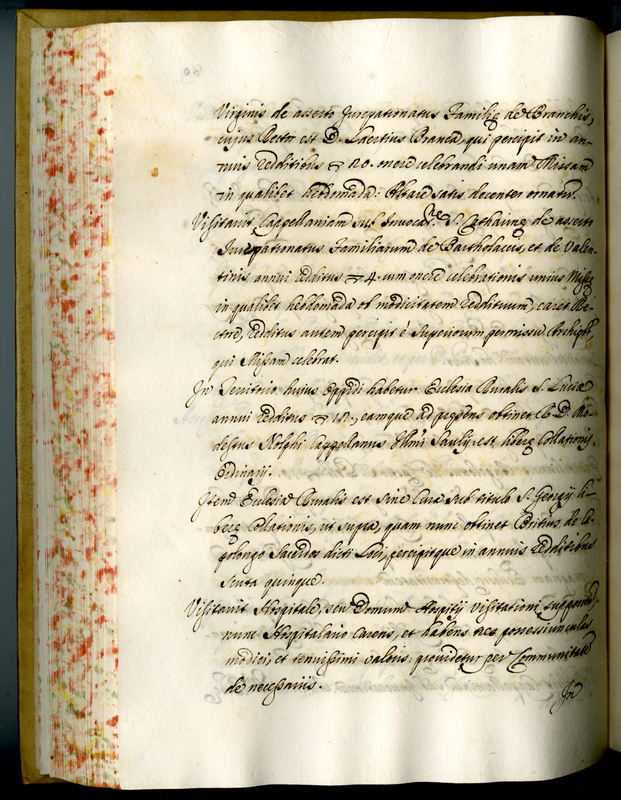 Virginis de asserto Jurepationatus Familiæ de Branchis,
cujus Rector est D. Laertius Branca, qui percipit in an-
nuis redditibus 20. onere celebrandi unam Missam
in qualibet hebdomada: Altare satis decenter ornatur.
Visitavit Cappellaniam sub Invocat.ne S. Catharinæ de asserto
Jurepationatus Familiarum de Bartholaciis, et de Valen-
tinis annui redditus 4. cum onere celebrationis unius Missæ
in qualibet hebdomada ob modicitatem reddituum, caret Re-
ctore, redditus autem percipit è Superiorum permissu Archipr.
qui Missam celebrat.
In Territorio huius Oppidi habetur Ecclesia Ruralis S. Luciæ
annui redditus 12., eamque ad præsens obtinet R. D. Mo-
destus Nolphi Cappellanus Ill.mi Paulij: est liberæ Collationis
Ordinarij.
Item Ecclesia Ruralis est sine Cura sub titulo S. Georgij li-
beræ Collationis, ut supra, quam nunc obtinet de Li-
golongo Sacerdos dicti Loci, percipitque in annuis redditibus
scuta quinque.
Visitavit Hospitale, seu Domum Hospitij Visitationi suppositum,
nunc Hospitalario carens, et habens tres possessiunculas
modici, et tenuissimi valoris: providetur per Communitatem
de necessariis.
In